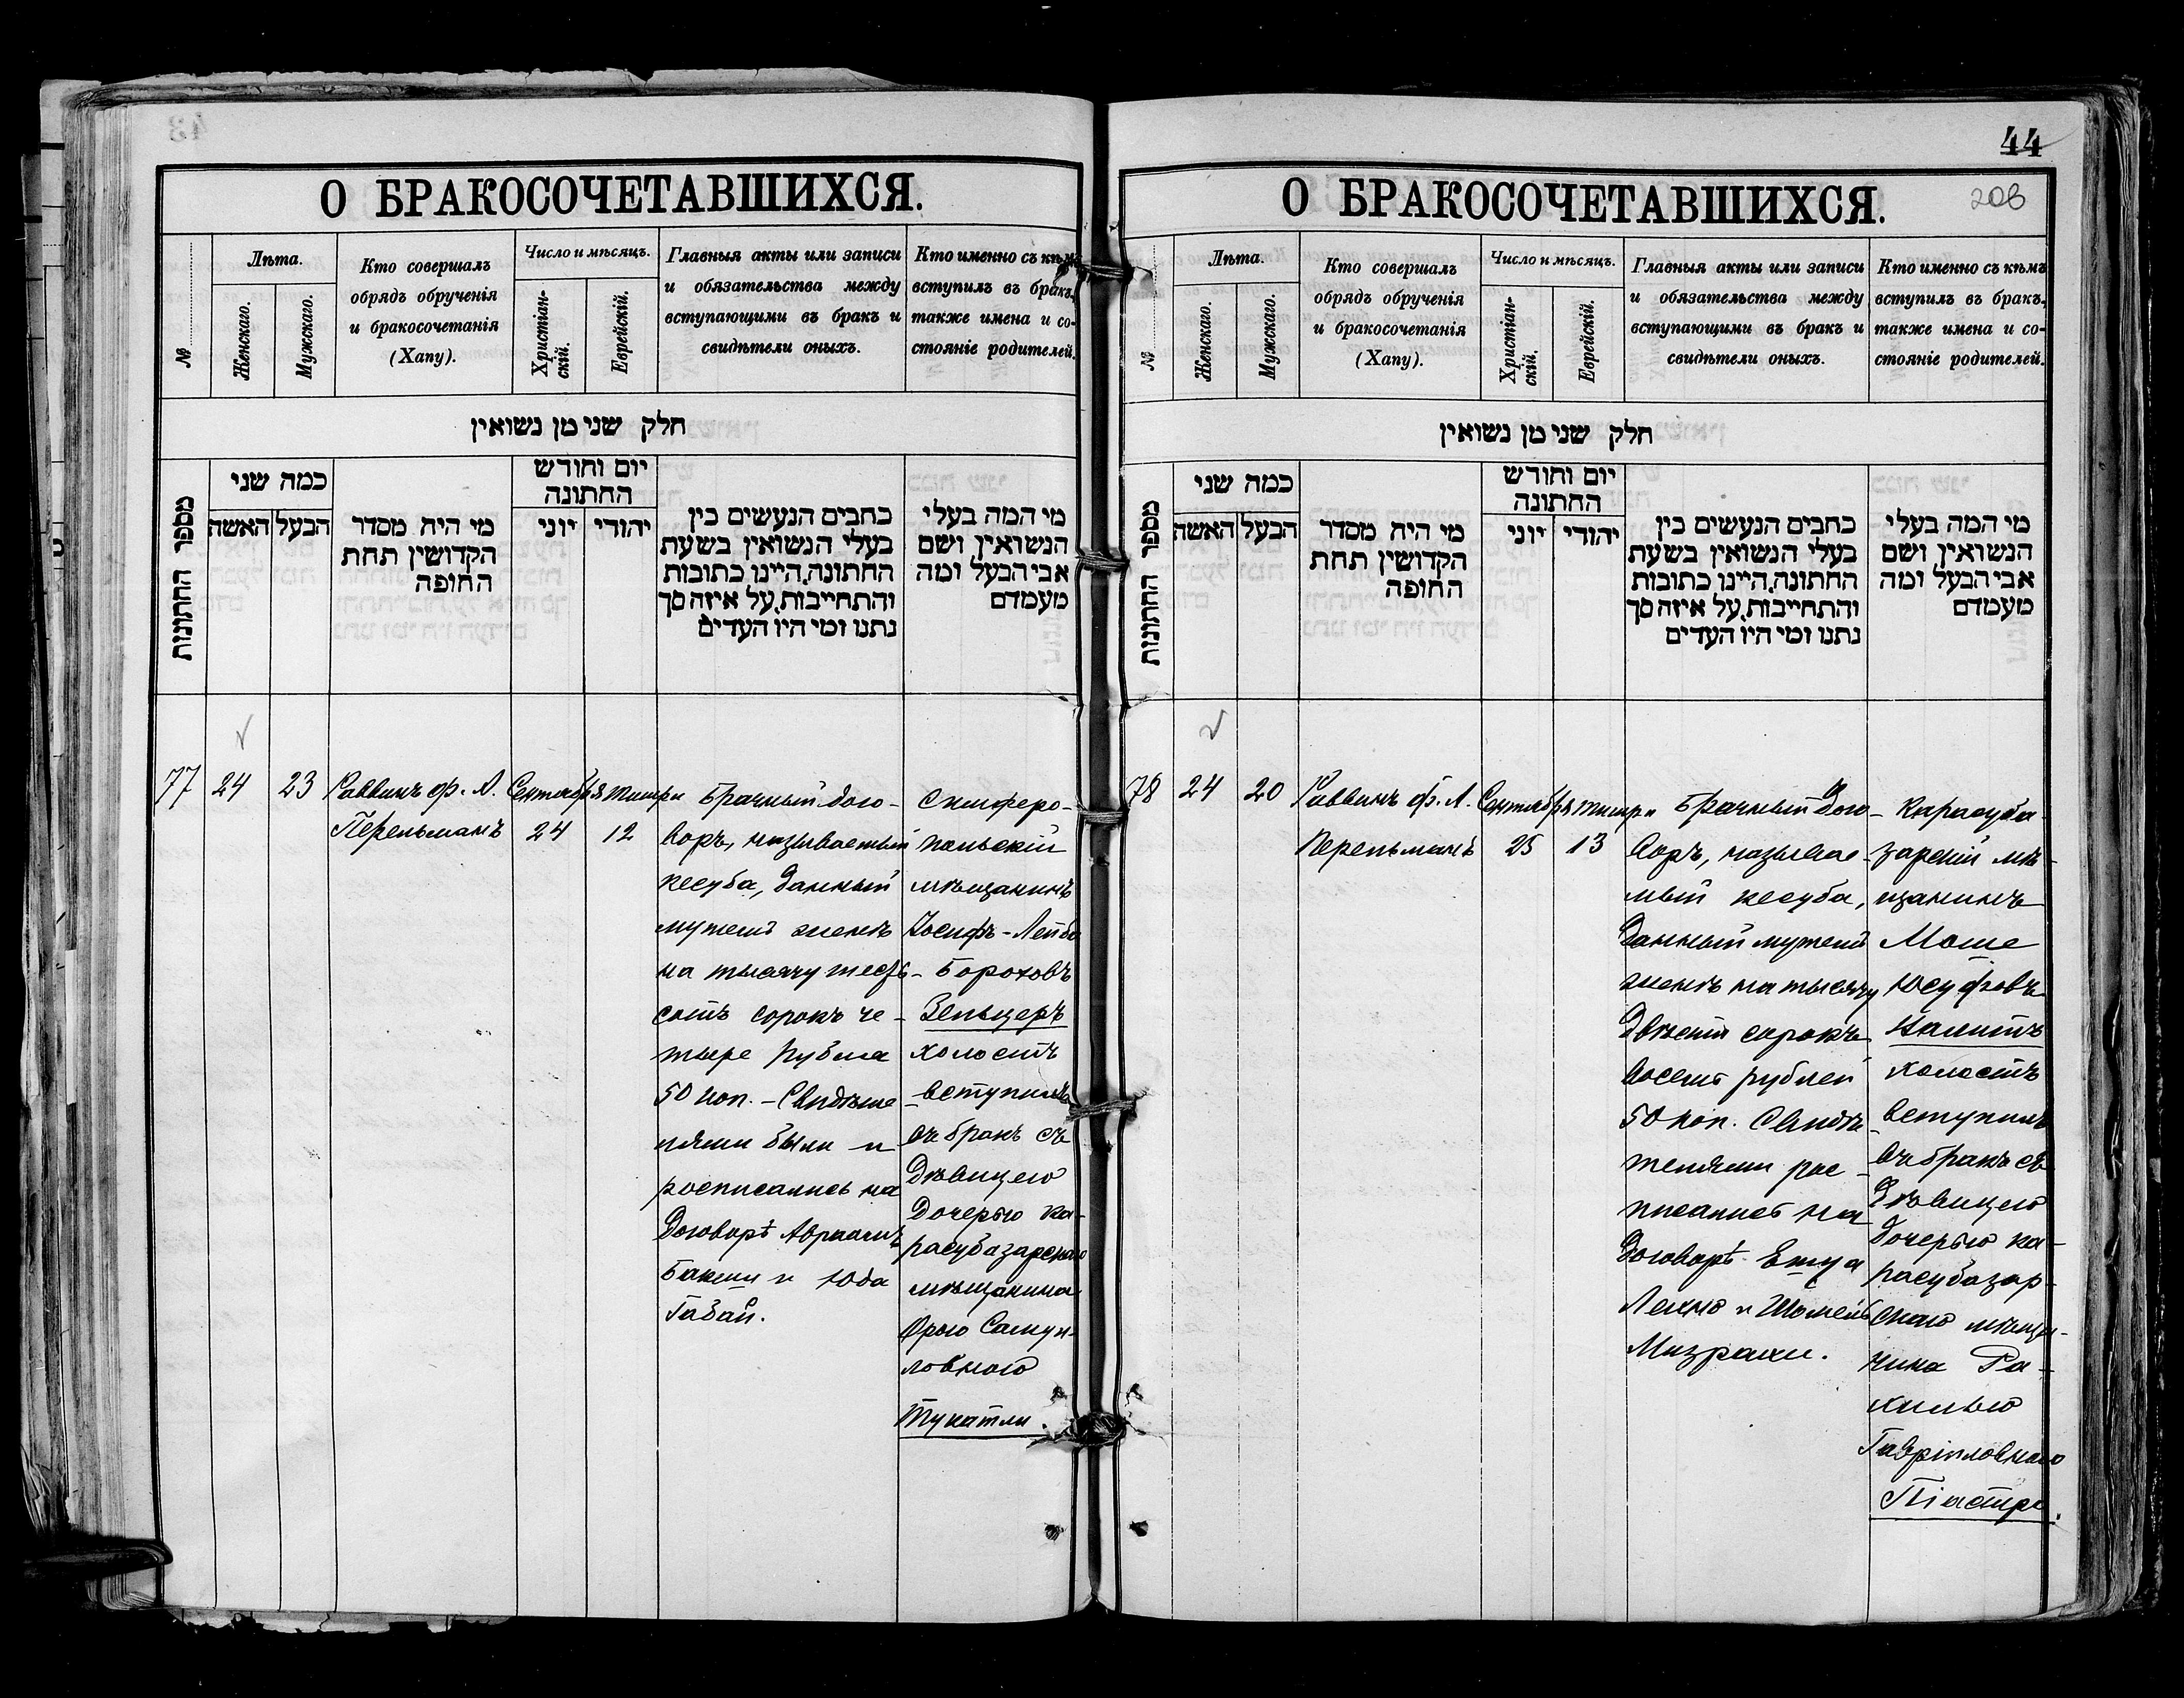 О БРАКОСОЧЕТАВШИХСЯ.
№
Лѣта.
Женскаго.
Мужскаго.
Кто совершалъ
обрядъ обрученія
и бракосочетанія
(Хапу).
Число и мѣсяцъ.
Христіан-
скій.
Еврейскій.
Главныя акты или записи
и обязательства между
вступающими въ бракъ и
свидѣтели оныхъ.
Кто именно съ кѣмъ
вступилъ въ бракъ,
также имена и со-
стояніе родителей.
חלק שני מן נשואין
מספר החתונות
כמה שני
האשה
הבעל
מי היה מסדר
הקדושין תחת
החופה
יום וחודש
החתונה
יוני
יהודי
כתבים הנעשים בין
בעלי הנשואין בשעת
החתונה, היינו כתובות
והתחייבות, על איזה סך
נתנו ומי היו העדים
מי המה בעלי
הנשואין, ושם
אבי הבעל ומה
מעמדם
77
24
23
Раввинъ Ф. Л.
Перельманъ
Сентября
24
Тишри
12
Брачный дого-
воръ, называемый
кесуба, данный
мужемъ женѣ
на тысячу шесть-
сотъ сорокъ че-
тыре рубля
50 коп. – Свидѣте-
лями были и
росписались на
договорѣ Авраамъ
Бакши и Юда
Габай.
Симферо-
польскій
мѣщанинъ
Іосифъ-Лейба
Бороховъ
Зельцеръ
холостъ
вступилъ
въ бракъ съ
дѣвицею
дочерью ка-
расубазарскаго
мѣщанина
Орою Самуи-
ловною
Тукатли.
44
208
О БРАКОСОЧЕТАВШИХСЯ.
№
Лѣта.
Женскаго.
Мужскаго.
Кто совершалъ
обрядъ обрученія
и бракосочетанія
(Хапу).
Число и мѣсяцъ.
Христіан-
скій.
Еврейскій.
Главныя акты или записи
и обязательства между
вступающими въ бракъ и
свидѣтели оныхъ.
Кто именно съ кѣмъ
вступилъ въ бракъ,
также имена и со-
стояніе родителей.
חלק שני מן נשואין
מספר החתונות
כמה שני
האשה
הבעל
מי היה מסדר
הקדושין תחת
החופה
יום וחודש
החתונה
יוני
יהודי
כתבים הנעשים בין
בעלי הנשואין בשעת
החתונה, היינו כתובות
והתחייבות, על איזה סך
נתנו ומי היו העדים
מי המה בעלי
הנשואין, ושם
אבי הבעל ומה
מעמדם
78
24
20
Раввинъ Ф. Л.
Перельманъ
Сентября
25
Тишри
13
Брачный дого-
воръ, называе-
мый кесуба,
данный мужемъ
женѣ на тысячу
двѣсти сорокъ
восемь рублей
50 коп. Свидѣ-
телями рос-
писались на
договорѣ Ешуа
Лехно и Шомель
Мизрахи.
Карасуба-
зарскій мѣ-
щанинъ
Моше
Юсуфовъ
холостъ
вступилъ
въ бракъ съ
дѣвицею
дочерью ка-
расубазар-
скаго мѣща-
нина Ра-
хилью
Гавріиловною
Піастре.